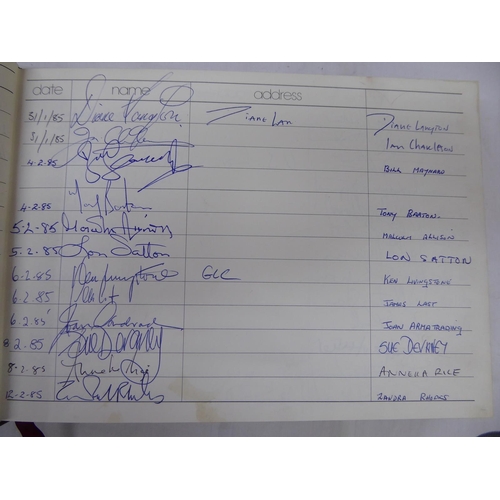 date name address
31/1/85 Diane Langton Diane Lan Diane Langton
31/1/85 Ian Charleson
4.2.85 Bill Maynard Bill Maynard
4.2.85 Tony Barton Tony Barton
5.2.85 Malcolm Allison Malcolm Allison
5.2.85 Lon Satton LON SATTON
6.2.85 Ken Livingstone GLC Ken Livingstone
6.2.85 James Last
6.2.85 Joan Armatrading
8.2.85 Sue Devaney SUE DEVANEY
8.2.85 Anneka Rice ANNEKA RICE
12.2.85 Zandra Rhodes